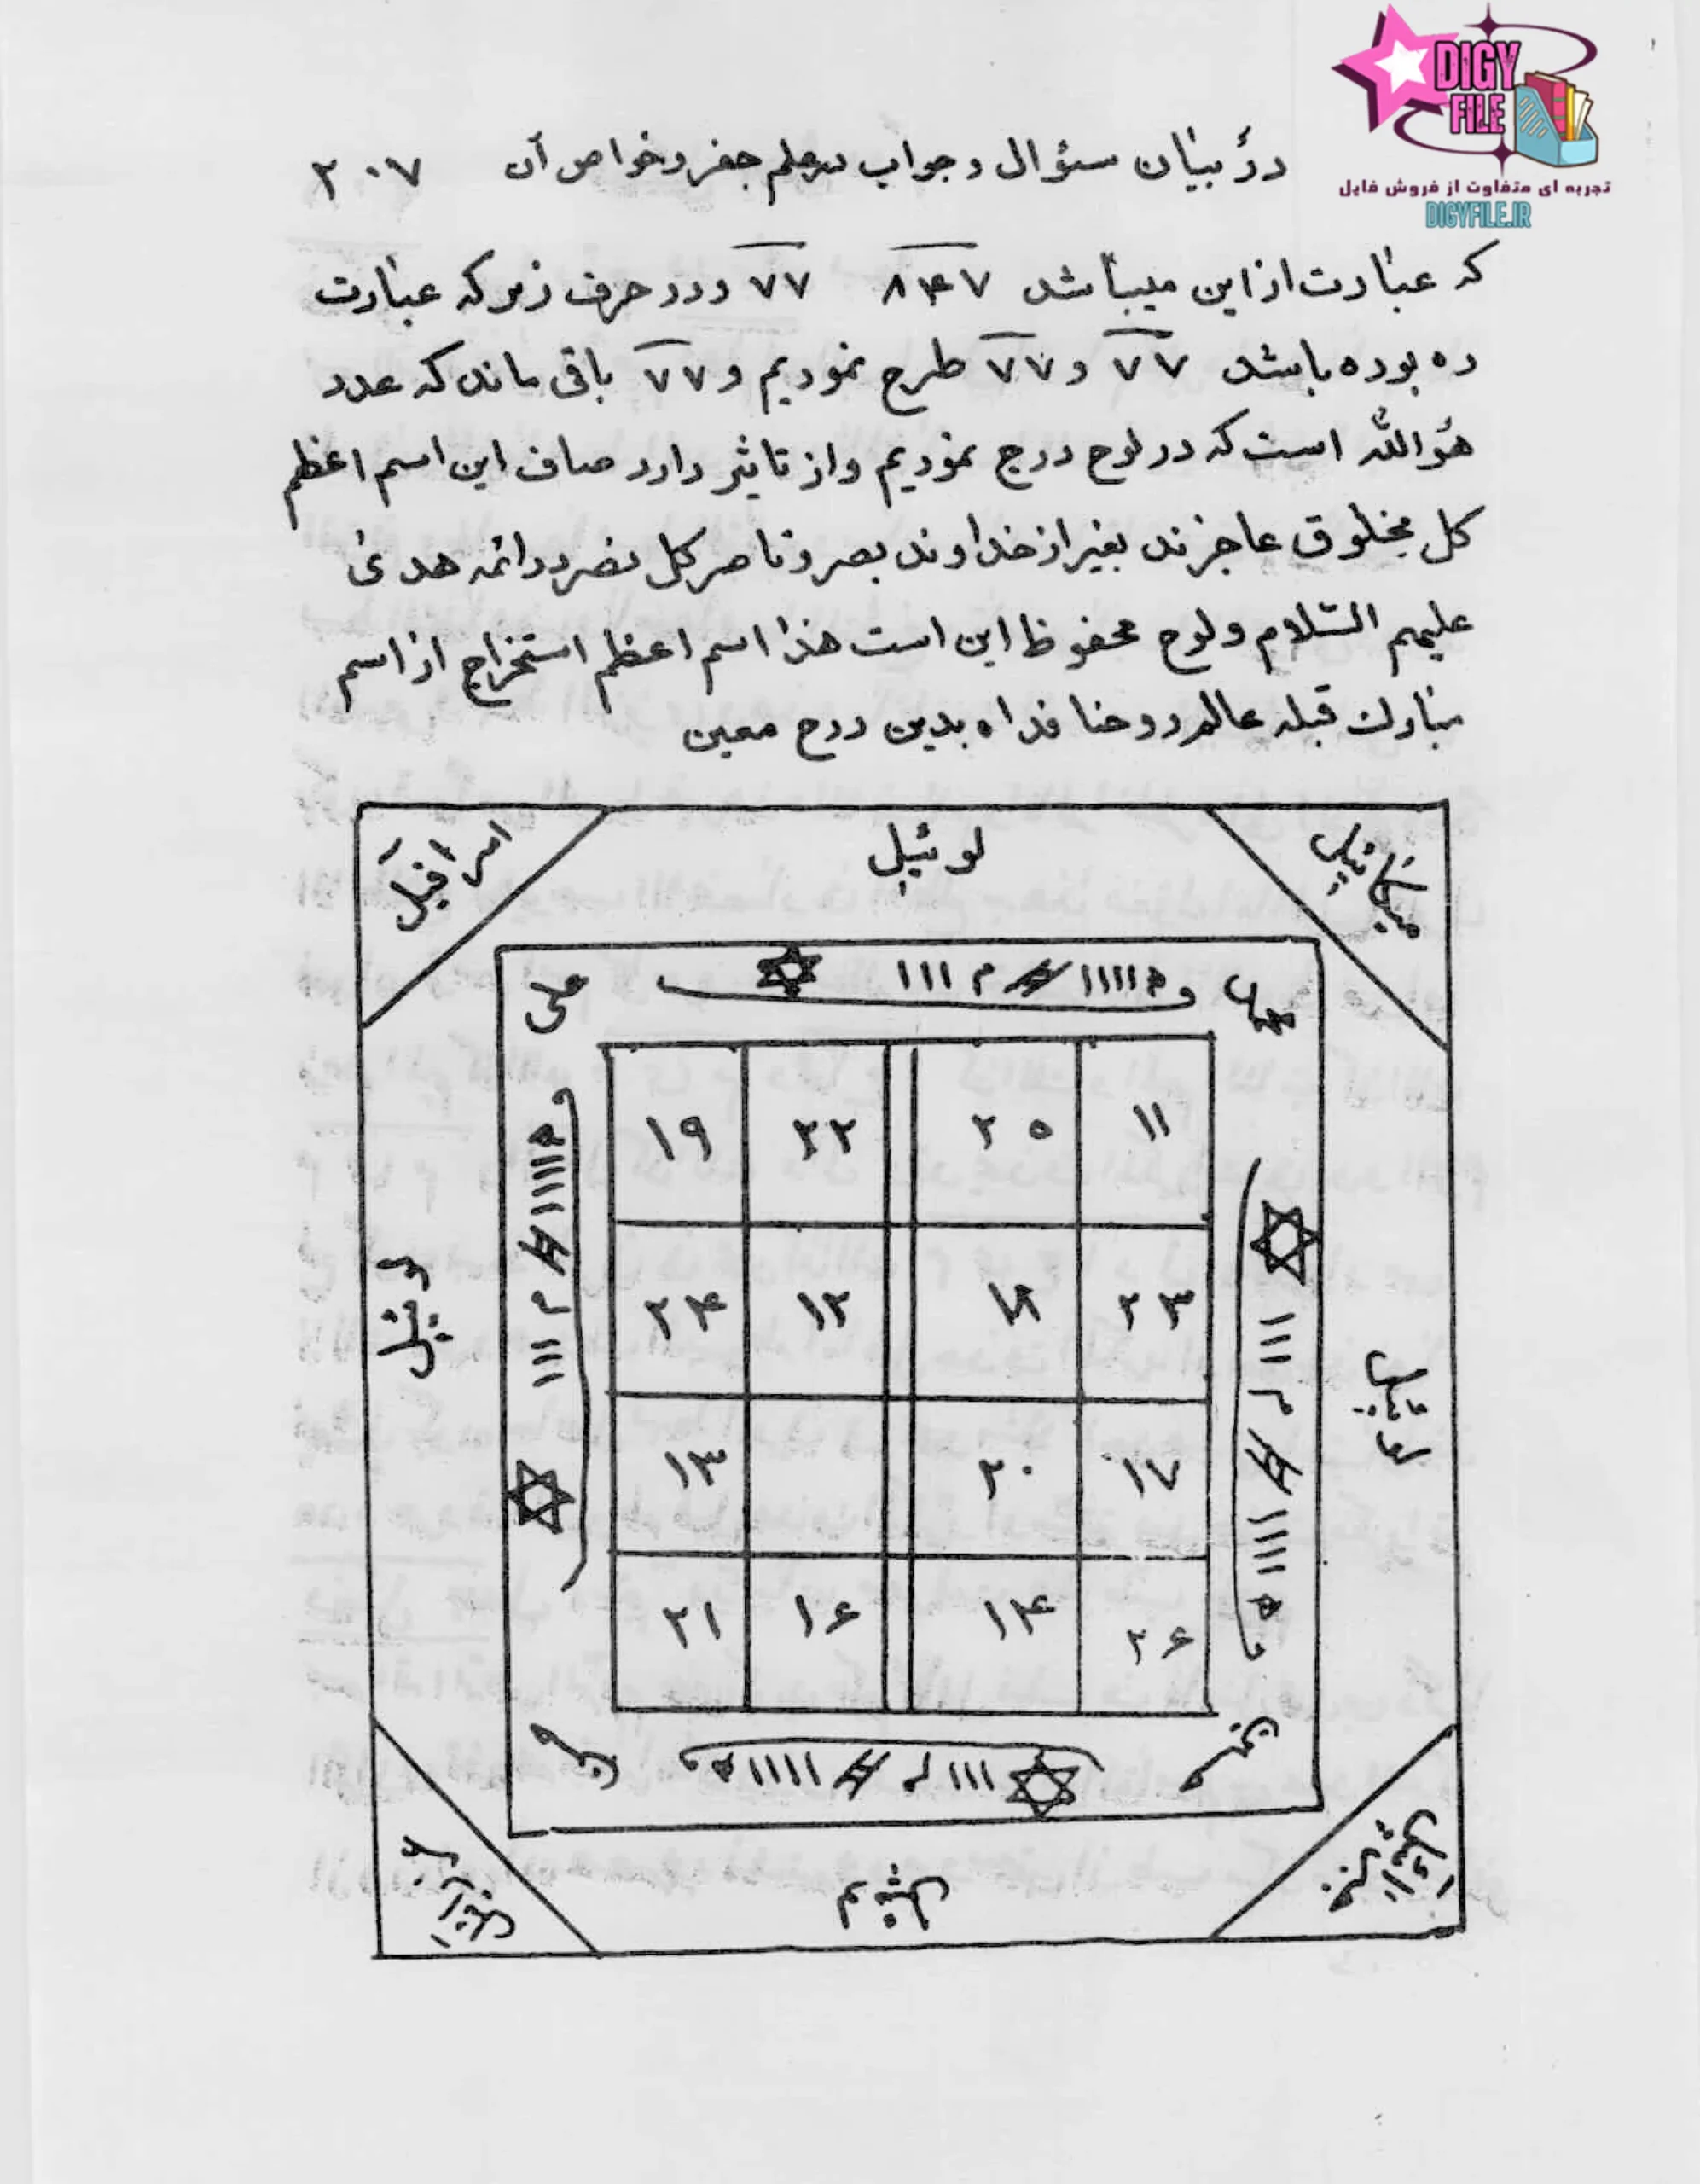 DIGY
FILE
تجربه ای متفاوت از فروش فایل
DIGYFILE.IR
در بیان سئوال و جواب در علم جفر و خواص آن ۲۰۷
که عبارت از این میباشد ۸۴۷ ۷۷ و دو حرف زبر که عبارت
ده بوده باشد ۷۷ و ۷۷ طرح نمودیم و ۷۷ باقی ماند که عدد
هو الله است که در لوح درج نمودیم و از تاثیر دارد صاف این اسم اعظم
کل مخلوق عاجزند بغیر از خداوند بصر و ناصر کل ائمه هدی
علیهم السّلام و لوح محفوظ این است هذا اسم اعظم استخراج از اسم
مبارك قبله عالم روحنا فداه بدین درج معین
اسرافیل لوئیل میکائیل
علی ااا م # اااا ه و
۱۹ ۲۲ ۲۵ ۱۱
۲۴ ۱۲ ۱۸ ۲۳
۱۳ ۲۰ ۱۷
۲۱ ۱۶ ۱۴ ۲۶
لوئیل
لوئیل